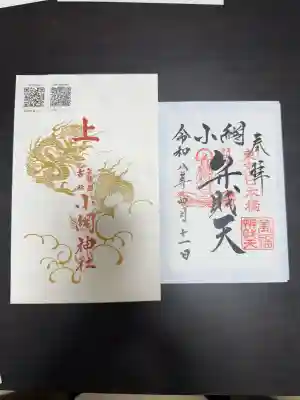 上
小網神社
奉拝
小網
弁財天
令和八年四月十一日
東京日本橋
萬福
舞財天